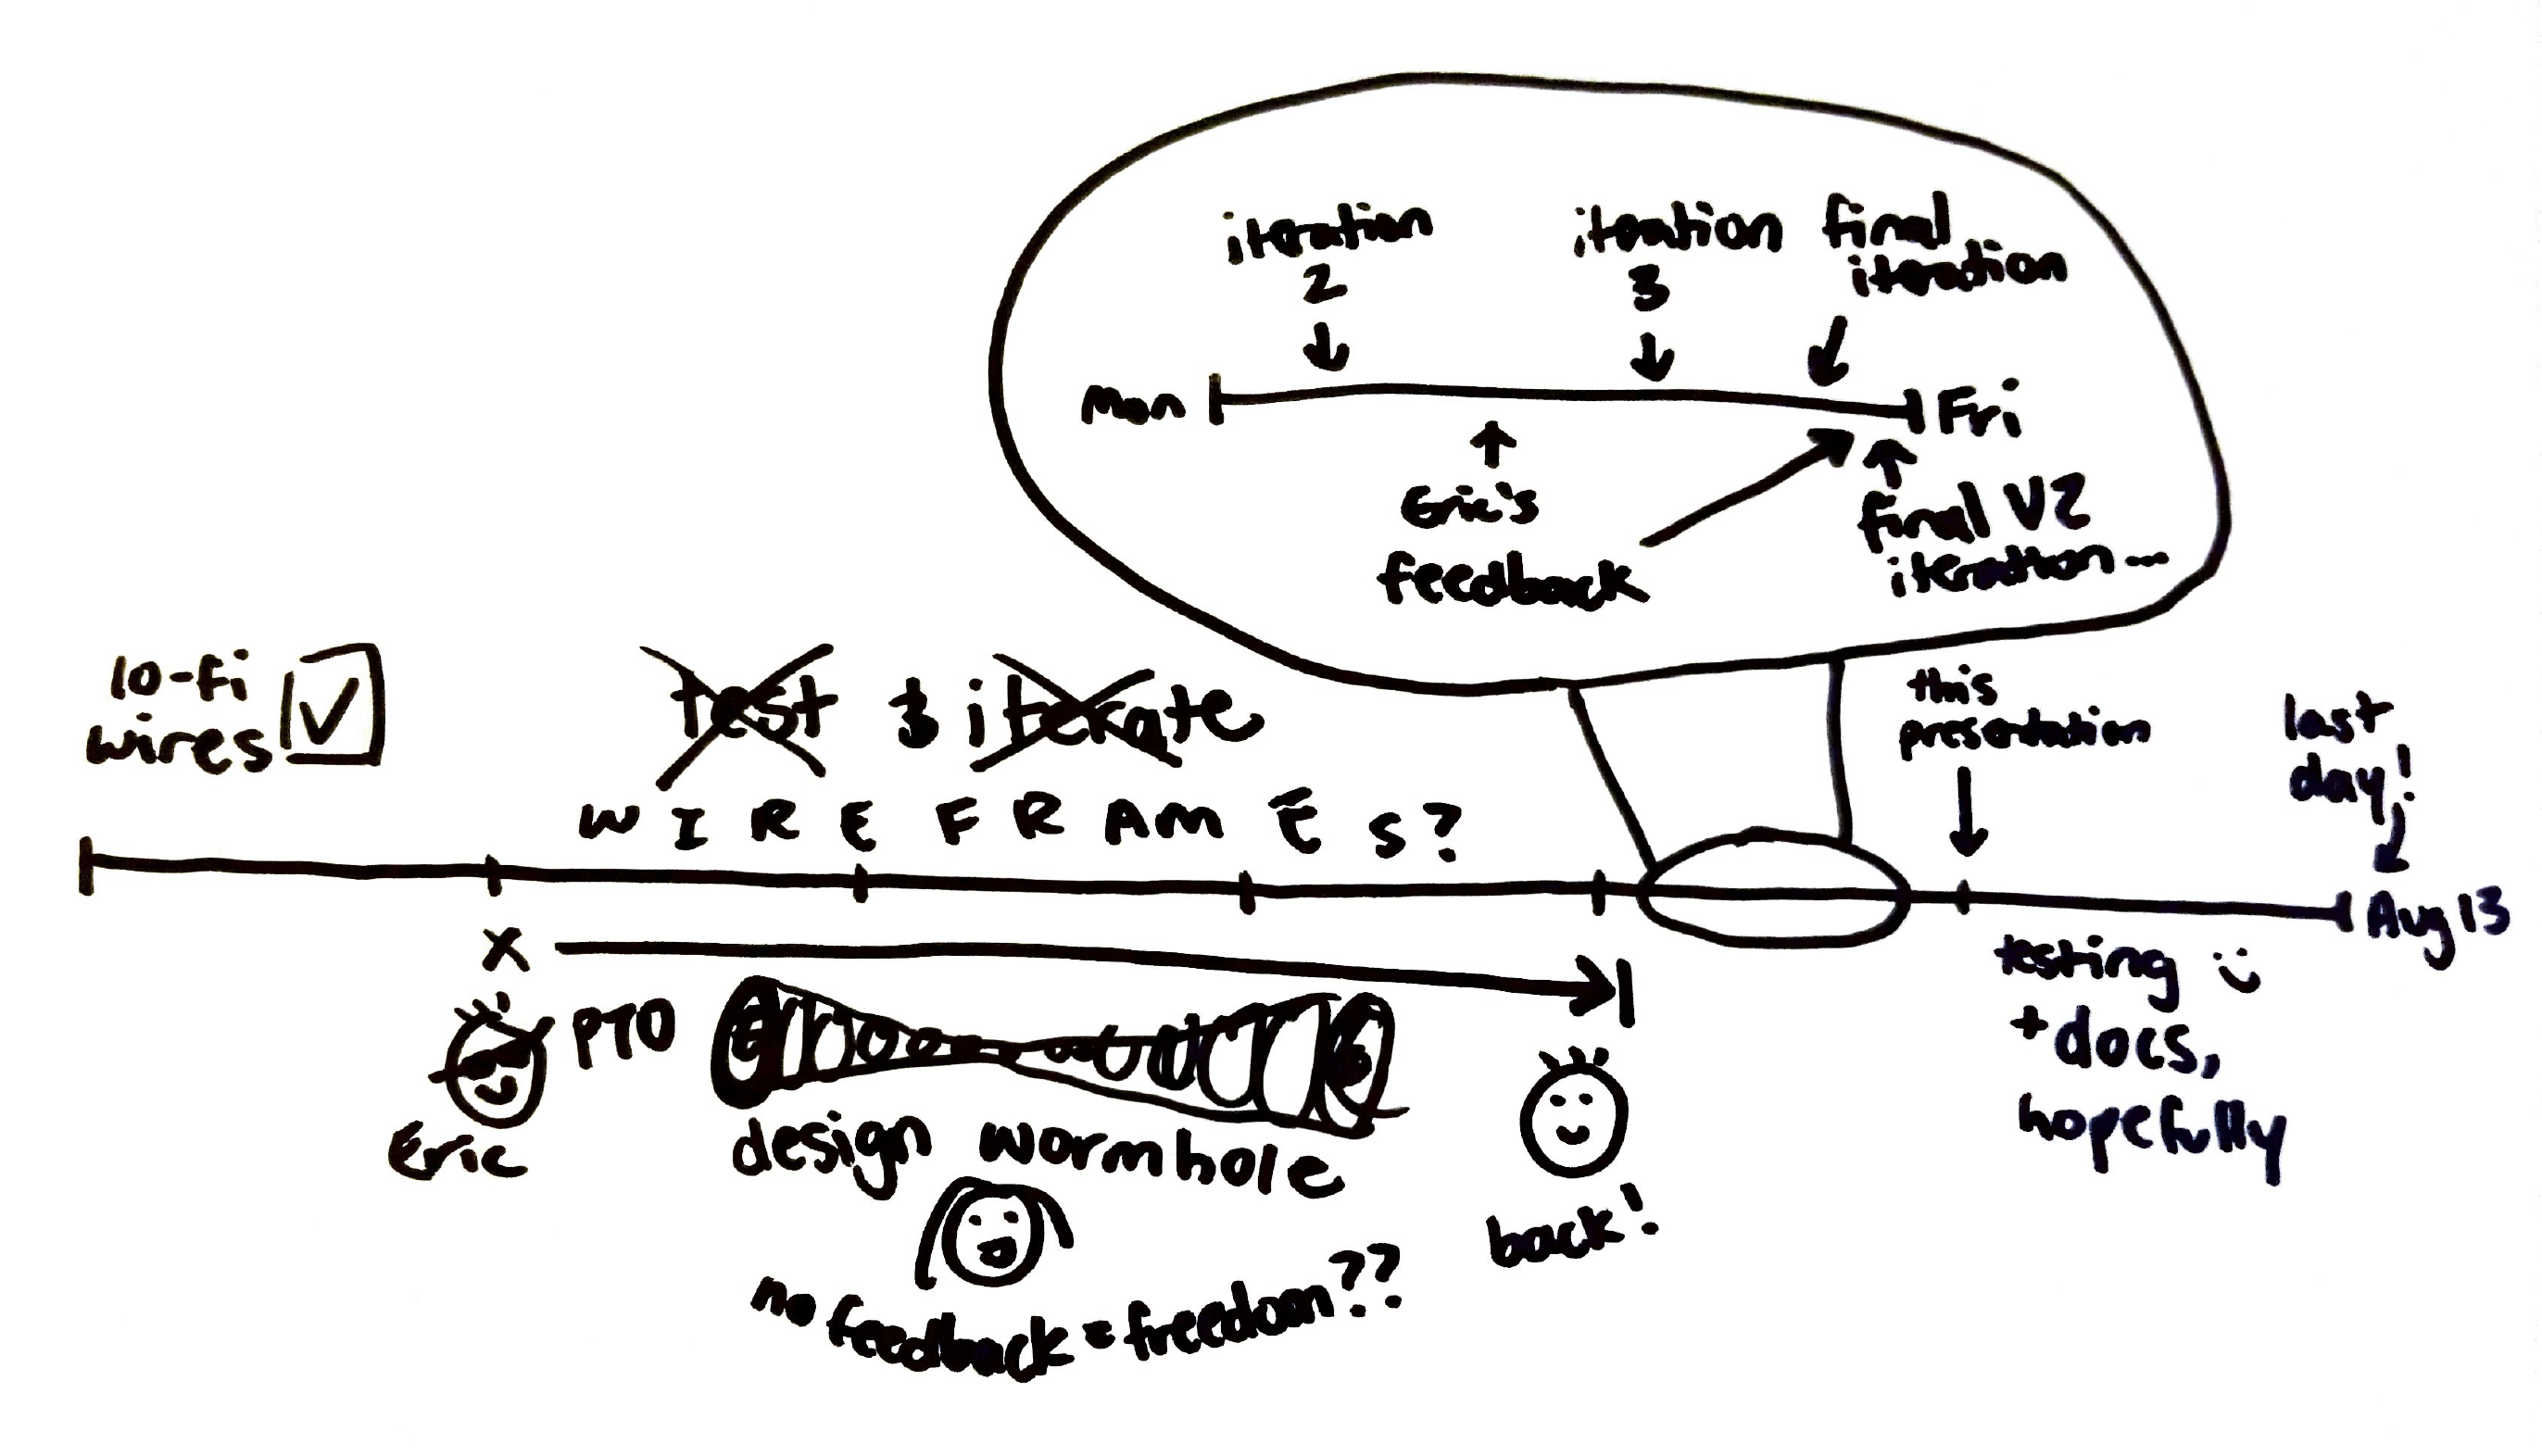 iteration
2
iteration
3
final
iteration
Mon
Fri
Eric's
feedback
final V2
iteration...
lo-fi
wires
test & iterate
W I R E F R A M E S?
this
presentation
last
day!
Aug 13
X
PTO
Eric
design wormhole
no feedback = freedom??
back!
testing :)
+ docs,
hopefully